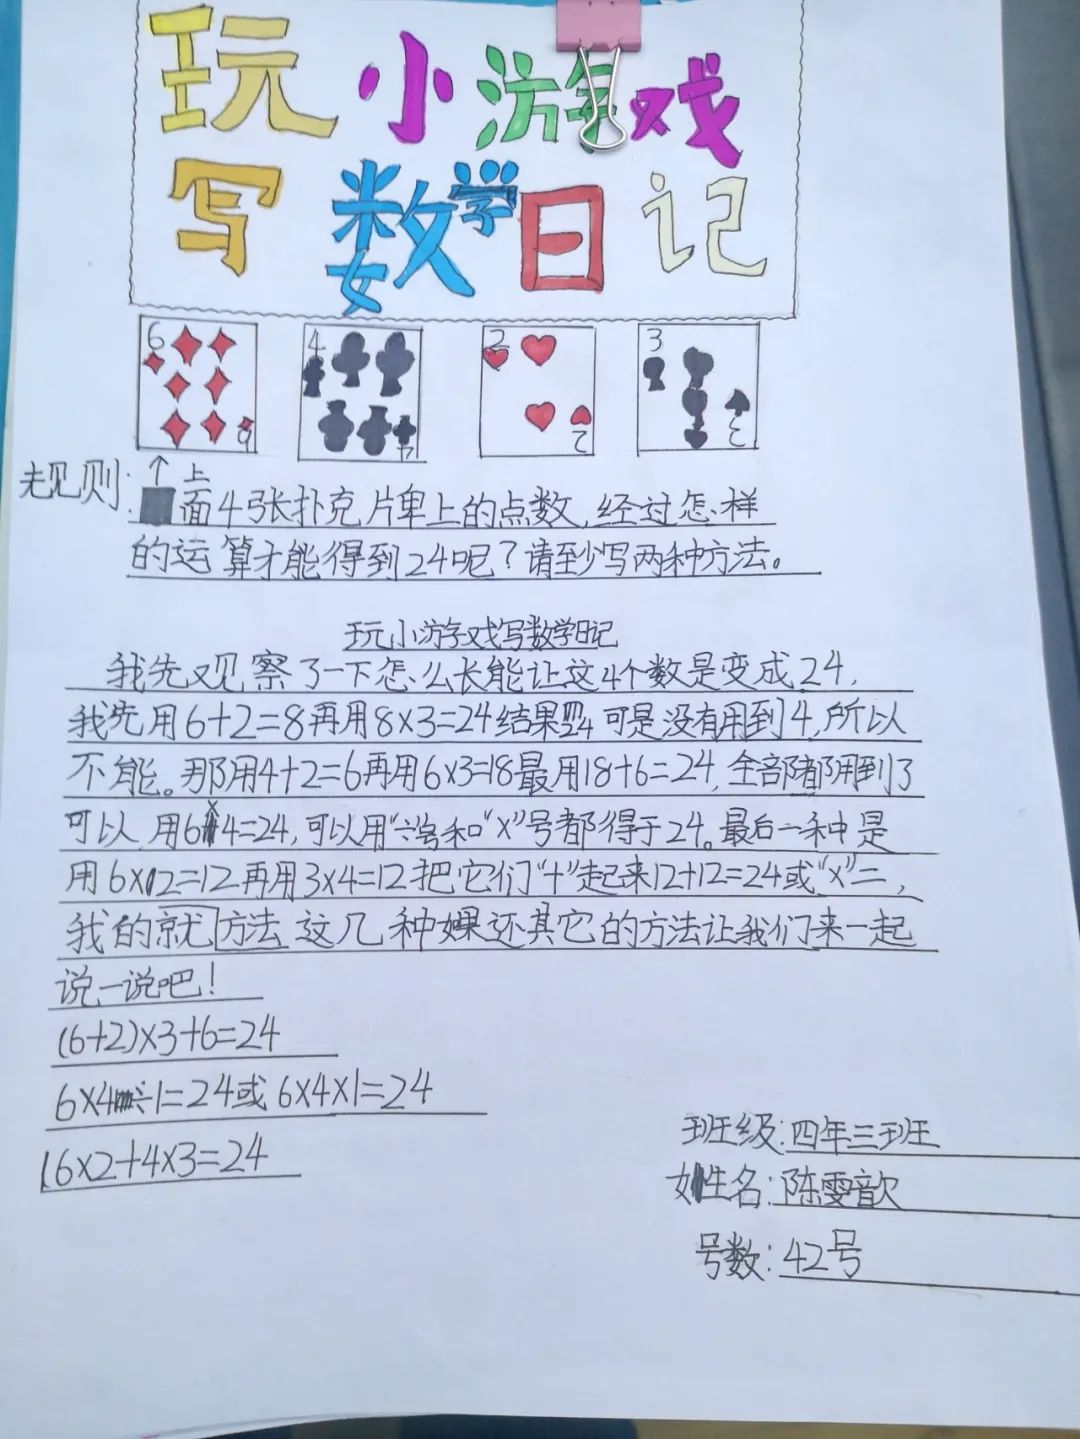 玩小游戏
写数学日记
6 4 2 3
6 4 2 3
规则:↑上
面4张扑克片卑上的点数,经过怎样
的运算才能得到24呢?请至少写两种方法。
玩小游字戏写数学日记
我先观察了一下怎么长能让这4个数是变成24,
我先用6+2=8再用8×3=24结果 24可是没有用到4,所以
不能。那用4+2=6再用6×3=18最用18+6=24,全部都用到了
可以,用6×4=24,可以用“÷”号和“×”号都得于24。最后一种是
用6×2=12再用3×4=12把它们“+”起来12+12=24或“×”二,
我的就方法这几种 还其它的方法让我们来一起
说一说吧!
(6+2)×3+6=24
6×4÷1=24或6×4×1=24
6×2+4×3=24
班级:四年三班
姓名:陈雯歆
号数:42号